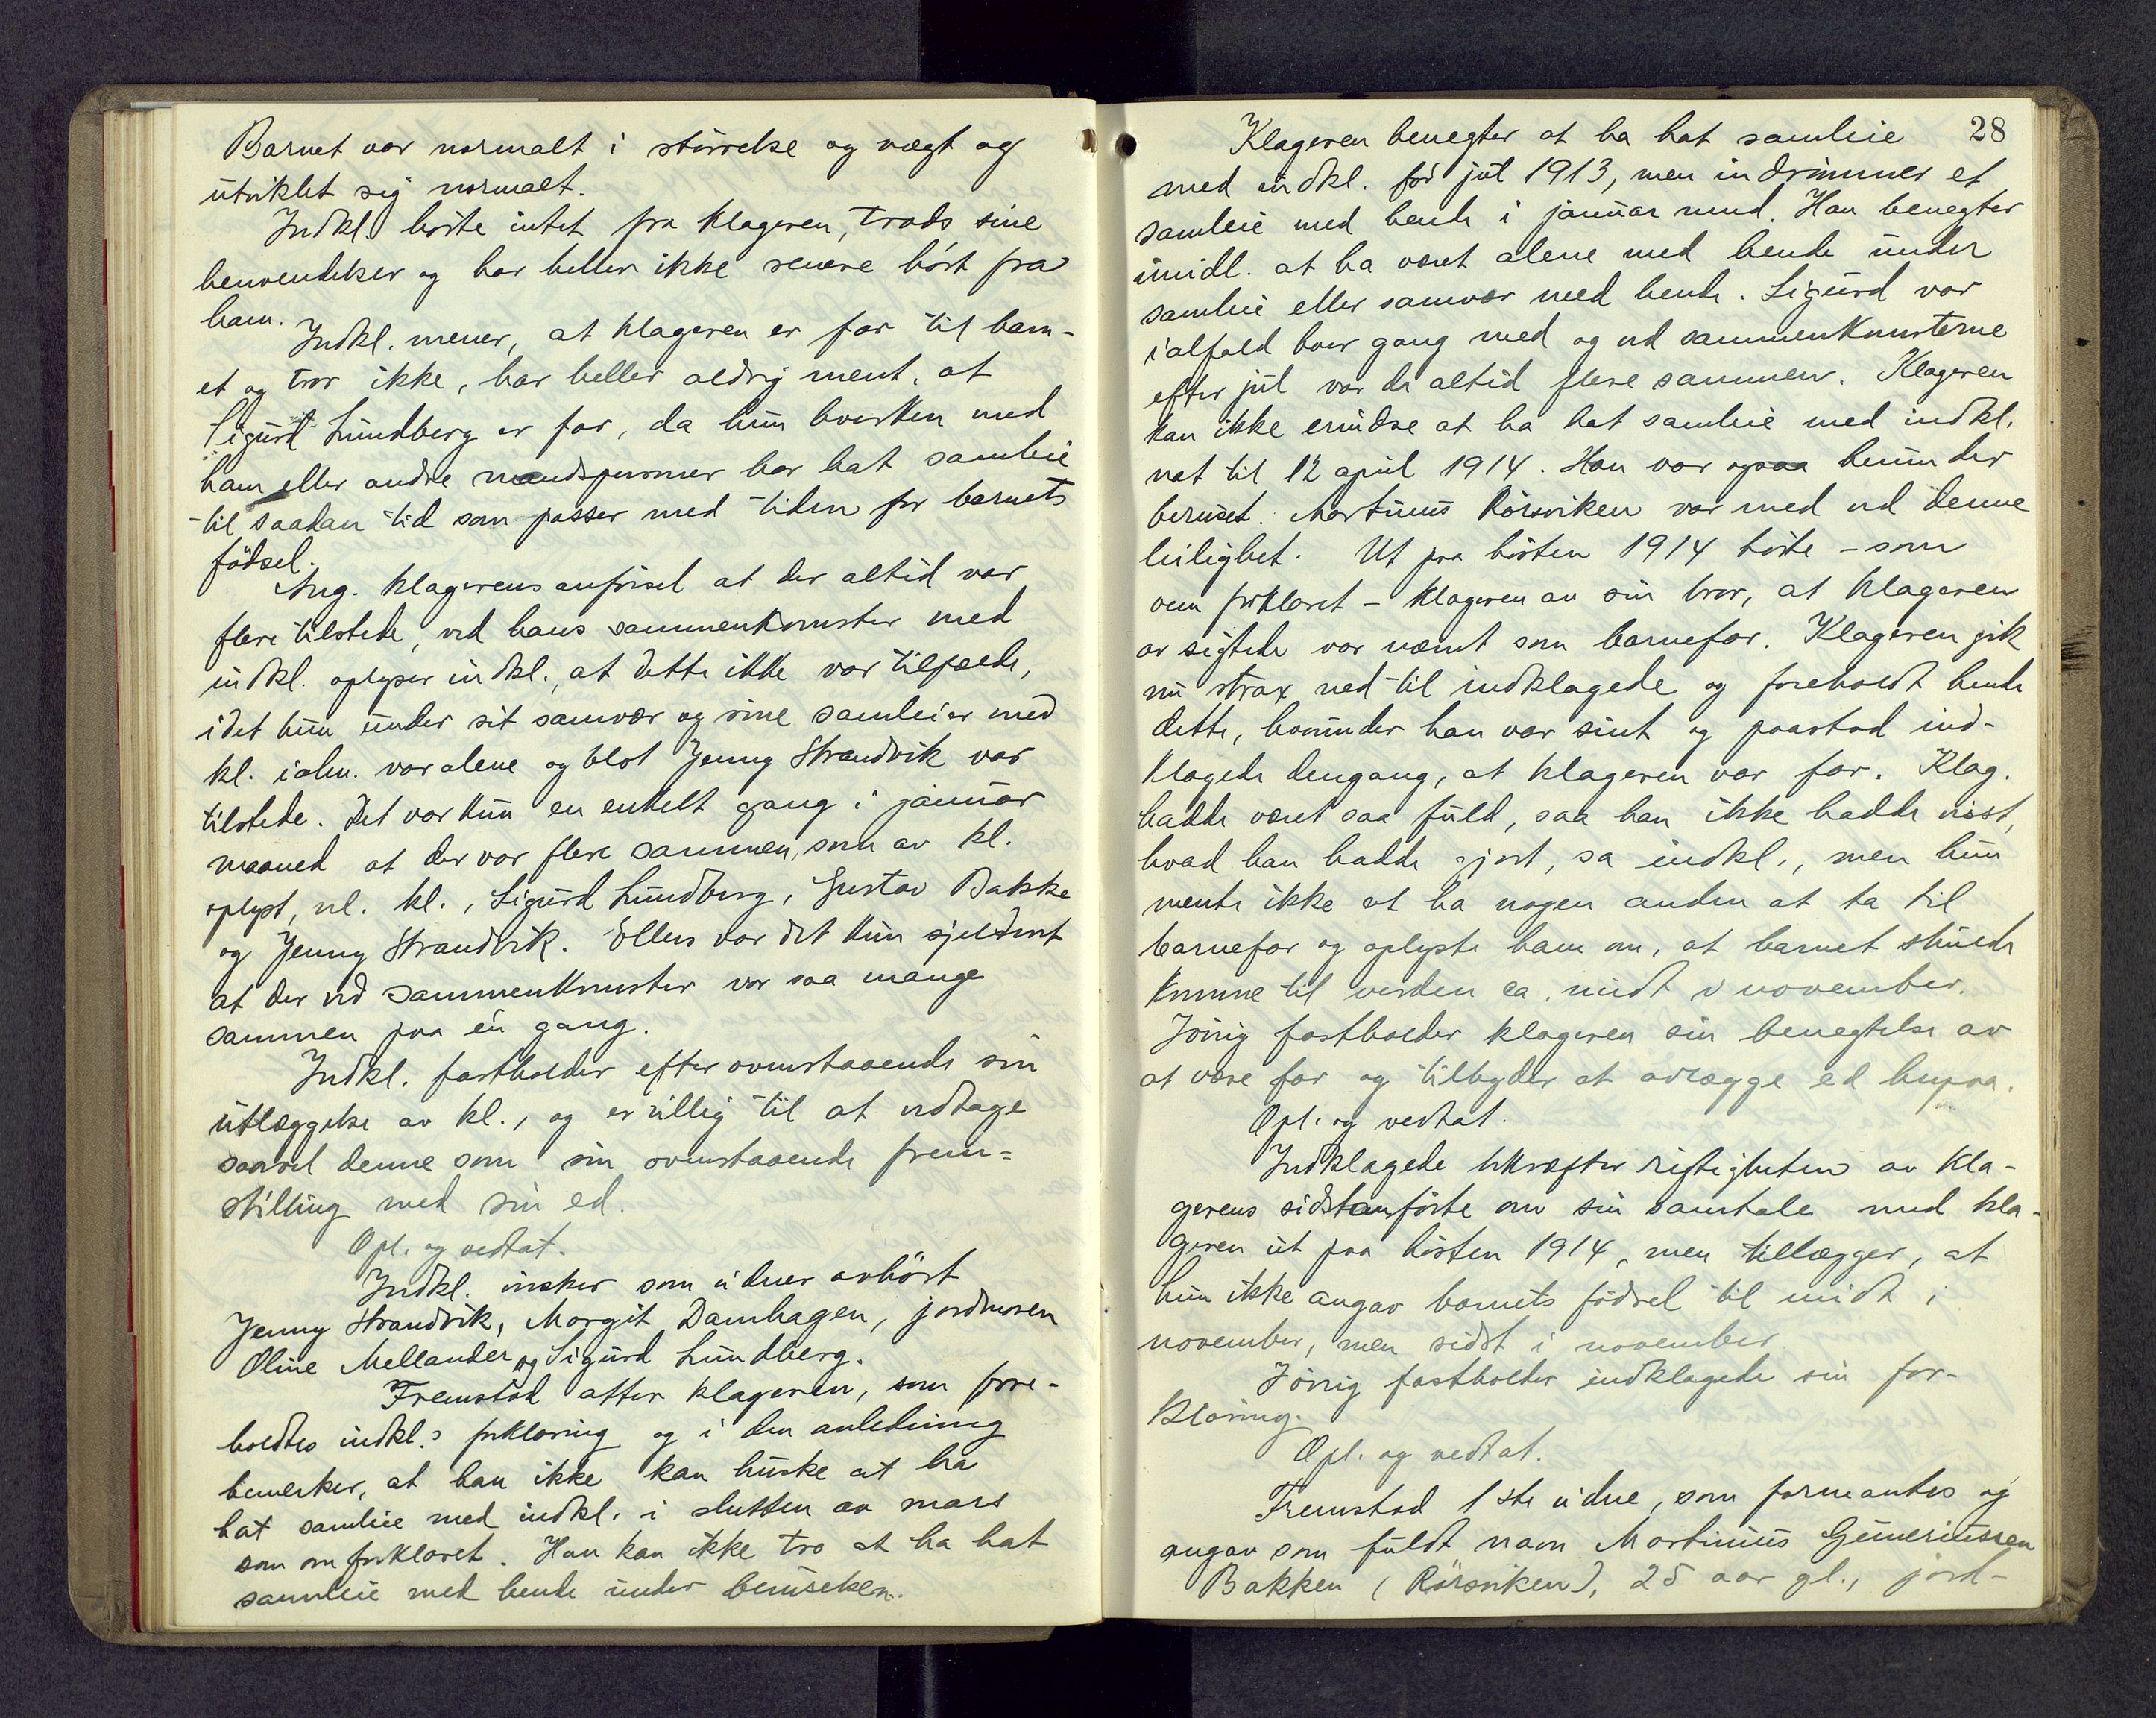 Barnet var normalt i størrelse og vegt og
utviklet sig normalt.
Indkl. hørte intet fra klageren, trods sine
henvendelser og har heller ikke senere hørt fra
ham.
Indkl. mener, at klageren er far til barn-
et og tror ikke, har heller aldrig ment, at
Sigurd Lundberg er far, da hun hverken med
ham eller andre mandspersoner har hat samleie
til saadan tid som passer med tiden for barnets
fødsel.
Ang. klagerens anførsel at der altid var
flere tilstede, ved hans sammenkomster med
indkl. oplyser indkl., at dette ikke var tilfælde,
idet hun under sit samvær og sine samleier med
kl. ialm. var alene og blot Jenny Strandvik var
tilstede. Det var kun en enkelt gang i januar
maaned at der var flere sammen, som av kl.
oplyst, nl. kl., Sigurd Lundberg, Gustav Bakke
og Jenny Strandvik. Ellers var det kun sjeldent
at der ved sammenkomster var saa mange
sammen paa én gang.
Indkl. fastholder efter ovenstaaende sin
utlæggelse av kl., og er villig til at vedtage
saavel denne som sin ovenstaaende frem=
stilling med sin ed.
Opl. og vedtat.
Indkl. ønsker som vidner avhørt
Jenny Strandvik, Margit Damhagen, jordmoren
Oline Mellander og Sigurd Lundberg.
Fremstod atter klageren, som fore-
holdtes indkl.s forklaring og i den anledning
bemerker, at han ikke kan huske at ha
hat samleie med indkl. i slutten av mars
som omforklaret. Han kan ikke tro at ha hat
samleie med hende under beruselsen.
28
Klageren benegter at ha hat samleie
med indkl. før jul 1913, men indrømmer et
samleie med hende i januar mnd. Han benegter
imidl. at ha været alene med hende under
samleie eller samvær med hende. Sigurd var
ialfald hver gang med og ved sammenkomsterne
efter jul var de altid flere sammen. Klageren
kan ikke erindre at ha hat samleie med indkl.
nat til 12 april 1914. Han var ogsaa herunder
beruset. Martinus Rørsviken var med ved denne
leilighet. Ut paa høsten 1914 hørte - som
ovenforklaret - klageren av sin bror, at klageren
av sigtede var nævnt som barnefar. Klageren gik
nu strax ned til indklagede og foreholdt hende
dette, hvorunder han var sint og paastod ind-
klagede dengang, at klageren var far. Klag.
hadde været saa fuld, saa han ikke hadde visst,
hvad han hadde gjort, sa indkl., men hun
mente ikke at ha nogen anden at ta til
barnefar og oplyste ham om, at barnet skulde
komme til verden ca. midt i november.
Iøvrig fastholder klageren sin benegtelse av
at være far og tilbyder at avlægge ed herpaa.
Opl. og vedtat.
Indklagede bekræfter rigtigheten av kla-
gerens sidstanførte om sin samtale med kla-
geren ut paa høsten 1914, men tillægger, at
hun ikke angav barnets fødsel til midt i
november, men sidst i november.
Iøvrig fastholder indklagede sin for-
klaring.
Opl. og vedtat.
Fremstod 1ste vidne, som formantes og
angav som fuldt navn Martinius Gunneriussen
Bakken (Rørsviken), 25 aar gl., jord-